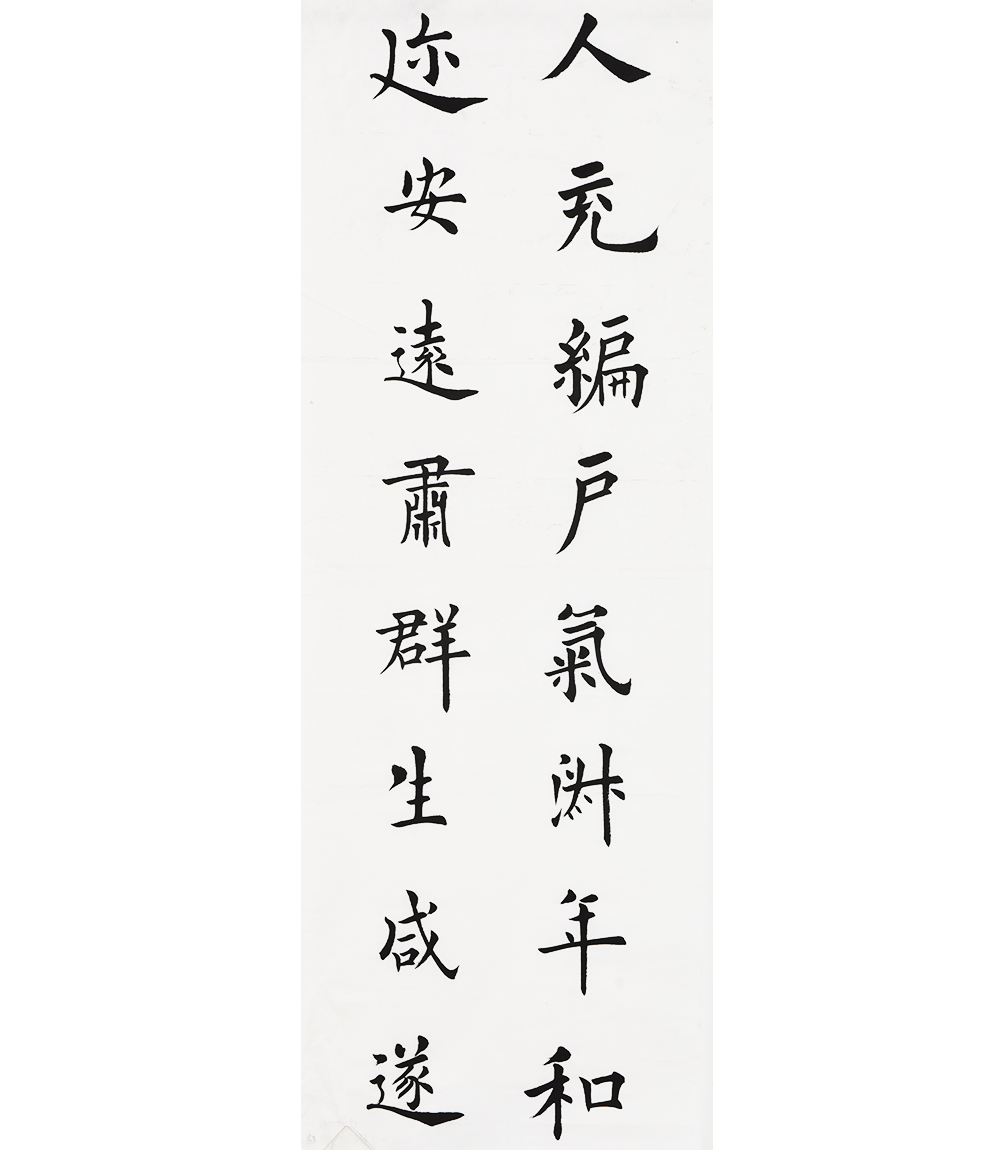 人充編戶氣淑年和
迩安遠肅群生咸遂